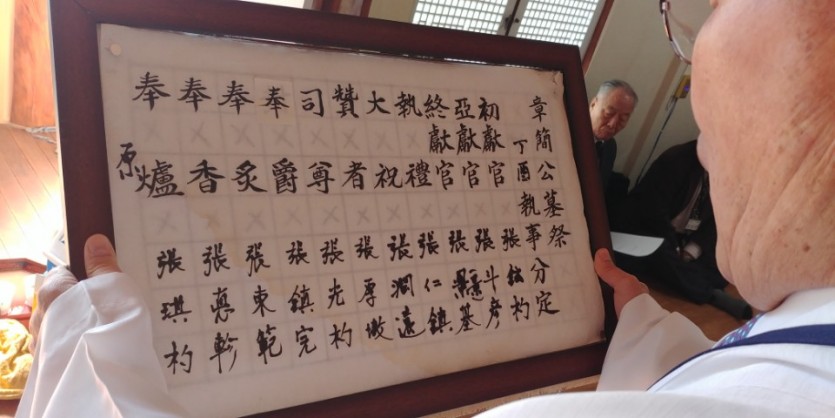 章簡公墓祭
丁酉執事分定
初獻官 張 杓
亞獻官 張斗彥
終獻官 張 基
執禮 張仁鎮
大祝 張潤遠
贊者 張厚
司尊 張光杓
奉爵 張鎮完
奉炙 張東範
奉香 張
奉爐 張琪杓
原